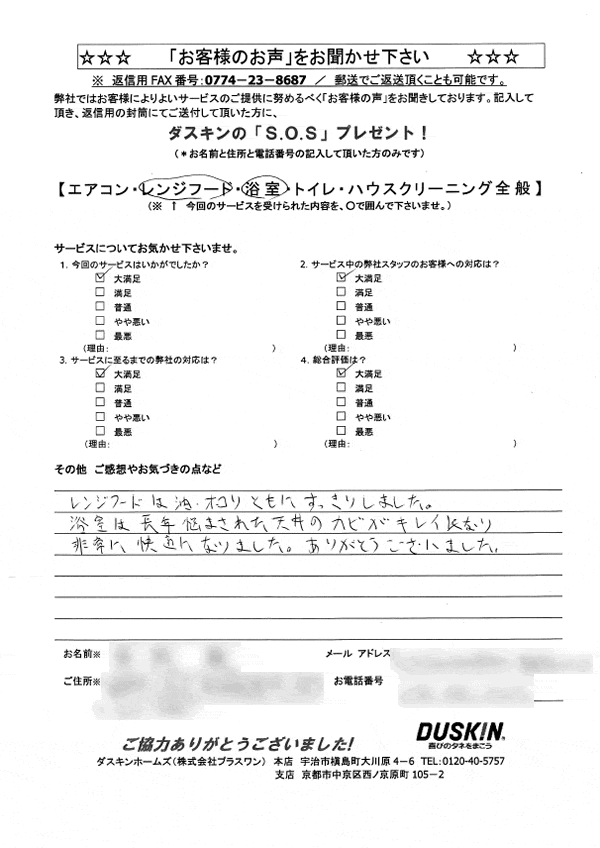 ☆☆☆ 「お客様のお声」をお聞かせ下さい ☆☆☆
※ 返信用FAX番号:0774-23-8687 / 郵送でご返送頂くことも可能です。
弊社ではお客様によりよいサービスのご提供に努めるべく「お客様の声」をお聞きしております。記入して
頂き、返信用の封筒にてご送付して頂いた方に、
ダスキンの「S.O.S」プレゼント!
(*お名前と住所と電話番号の記入して頂いた方のみです)
【エアコン・レンジフード・浴室・トイレ・ハウスクリーニング全般】
(※ ↑ 今回のサービスを受けられた内容を、○で囲んで下さいませ。)
サービスについてお気かせ下さいませ。
1. 今回のサービスはいかがでしたか?
☑ 大満足
□ 満足
□ 普通
□ やや悪い
□ 最悪
(理由: )
2. サービス中の弊社スタッフのお客様への対応は?
☑ 大満足
□ 満足
□ 普通
□ やや悪い
□ 最悪
(理由: )
3. サービスに至るまでの弊社の対応は?
☑ 大満足
□ 満足
□ 普通
□ やや悪い
□ 最悪
(理由: )
4. 総合評価は?
☑ 大満足
□ 満足
□ 普通
□ やや悪い
□ 最悪
(理由: )
その他 ご感想やお気づきの点など
レンジフードは油・ホコリともにすっきりしました。
浴室は長年悩まされた天井のカビがキレイになり
非常に快適になりました。ありがとうございました。
お名前※ メール アドレス
ご住所※ お電話番号
ご協力ありがとうございました!
DUSKIN
喜びのタネをまこう
ダスキンホームズ(株式会社プラスワン) 本店 宇治市槇島町大川原4-6 TEL:0120-40-5757
支店 京都市中京区西ノ京原町105-2